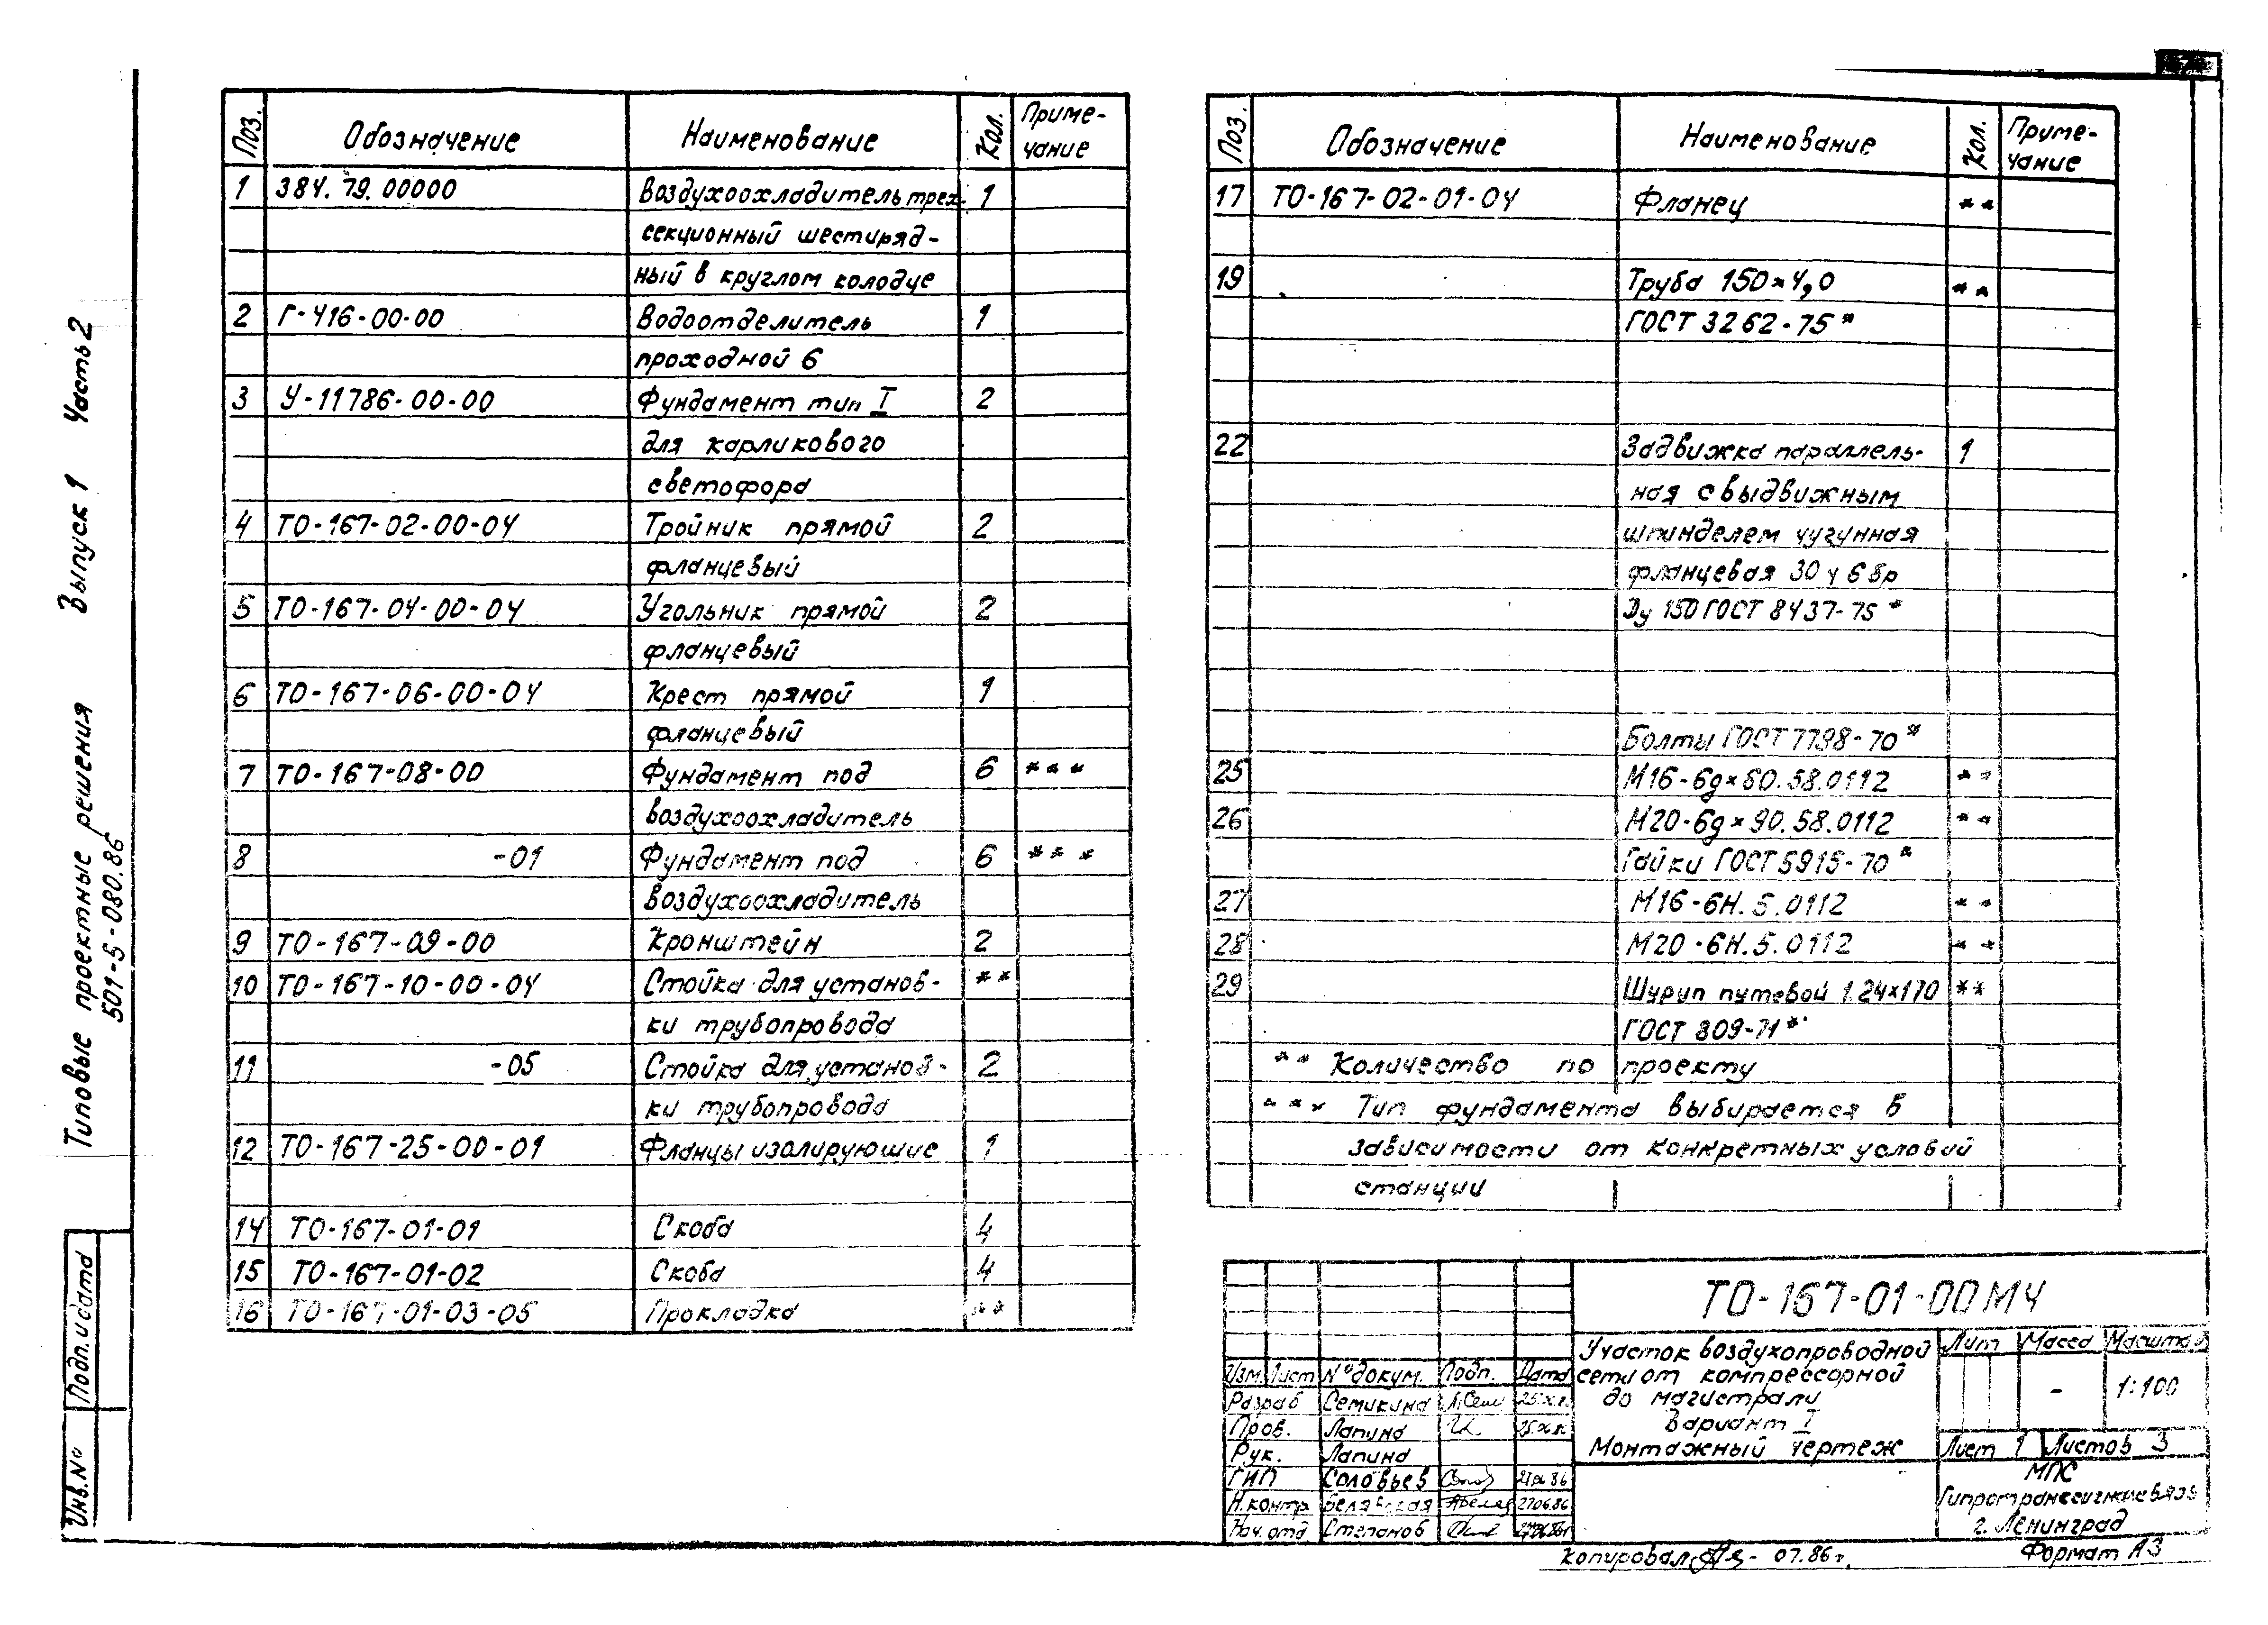 Типовые проектные решения Выпуск 1 Часть 2
501-5-080.86
Подп. и дата
Инв. №
Поз. Обозначение Наименование Кол. Приме-
чание
1 384. 79. 00000 Воздухоохладитель трех- 1
секционный шестиряд-
ный в круглом колодце
2 Г-416-00-00 Водоотделитель 1
проходной 6
3 У-11786-00-00 Фундамент тип I 2
для карликового
светофора
4 ТО-167-02-00-04 Тройник прямой 2
фланцевый
5 ТО-167-04-00-04 Угольник прямой 2
фланцевый
6 ТО-167-06-00-04 Крест прямой 1
фланцевый
7 ТО-167-08-00 Фундамент под 6 ***
воздухоохладитель
8 -01 Фундамент под 6 ***
воздухоохладитель
9 ТО-167-09-00 Кронштейн 2
10 ТО-167-10-00-04 Стойка для установ- **
ки трубопровода
11 -05 Стойка для установ- 2
ки трубопровода
12 ТО-167-25-00-01 Фланцы изолирующие 1
14 ТО-167-01-01 Скоба 4
15 ТО-167-01-02 Скоба 4
16 ТО-167-01-03-05 Прокладка **
Поз. Обозначение Наименование Кол. Приме-
чание
17 ТО-167-02-01-04 Фланец **
19 Труба 150×4,0 **
ГОСТ 3262-75*
22 Задвижка параллель- 1
ная с выдвижным
шпинделем чугунная
фланцевая 30 ч 6 бр
Ду 150 ГОСТ 8437-75*
Болты ГОСТ 7798-70*
25 М16-6g×60.58.0112 **
26 М20-6g×90.58.0112 **
Гайки ГОСТ 5915-70*
27 М16-6Н.5.0112 **
28 М20-6Н.5.0112 **
29 Шуруп путевой 1.24×170 **
ГОСТ 809-71*
** Количество по проекту
*** Тип фундамента выбирается в
зависимости от конкретных условий
станции
ТО-167-01-00МЧ
Участок воздухопроводной
сети от компрессорной
до магистрали
Вариант I
Монтажный чертеж
Лит Масса Масштаб
- 1:100
Лист 1 Листов 3
МПС
Гипротранссигналсвязь
г. Ленинград
Изм. Лист № докум. Подп. Дата
Разраб Семикина
Пров. Лапина
Рук. Лапина
ГИП Соловьев
Н.контр Белявская 27.06.86
Нач. отд Степанов
Копировал 07.86 г.
Формат А3